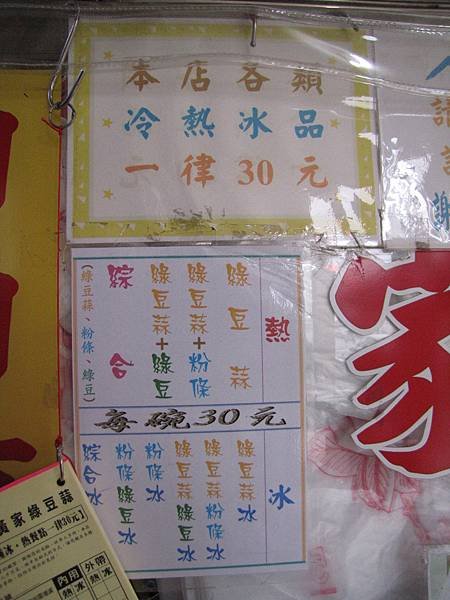 本店各類
冷熱冰品
一律30元
熱
綠豆蒜
綠豆蒜+粉條
綠豆蒜+綠豆
綜合
(綠豆蒜、粉條、綠豆)
每碗30元
冰
綠豆蒜冰
綠豆蒜粉條冰
綠豆蒜綠豆冰
粉條冰
粉條綠豆冰
綜合冰
請
謝
家
黃家綠豆蒜
冰、熱餐點一律30元】
內用
熱冰
外帶
熱冰